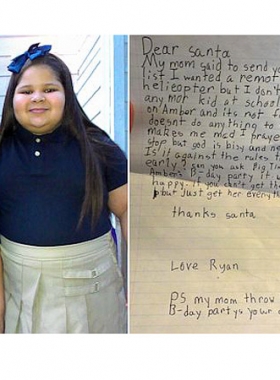 Dear santa
My mom said to send you
list I wanted a remot
helicopter but I don't
any mor kid at school
on Ambor and its not f
doesnt do anything to
makes me med I praye
stop but god is bisy and ne
Is it against the rules
early? can you ask Big Tim
Amber's B-day party it w
happy. If you can't get th
but just get her everyth
thanks santa
Love Ryan
PS my mom throw
B-day partys your